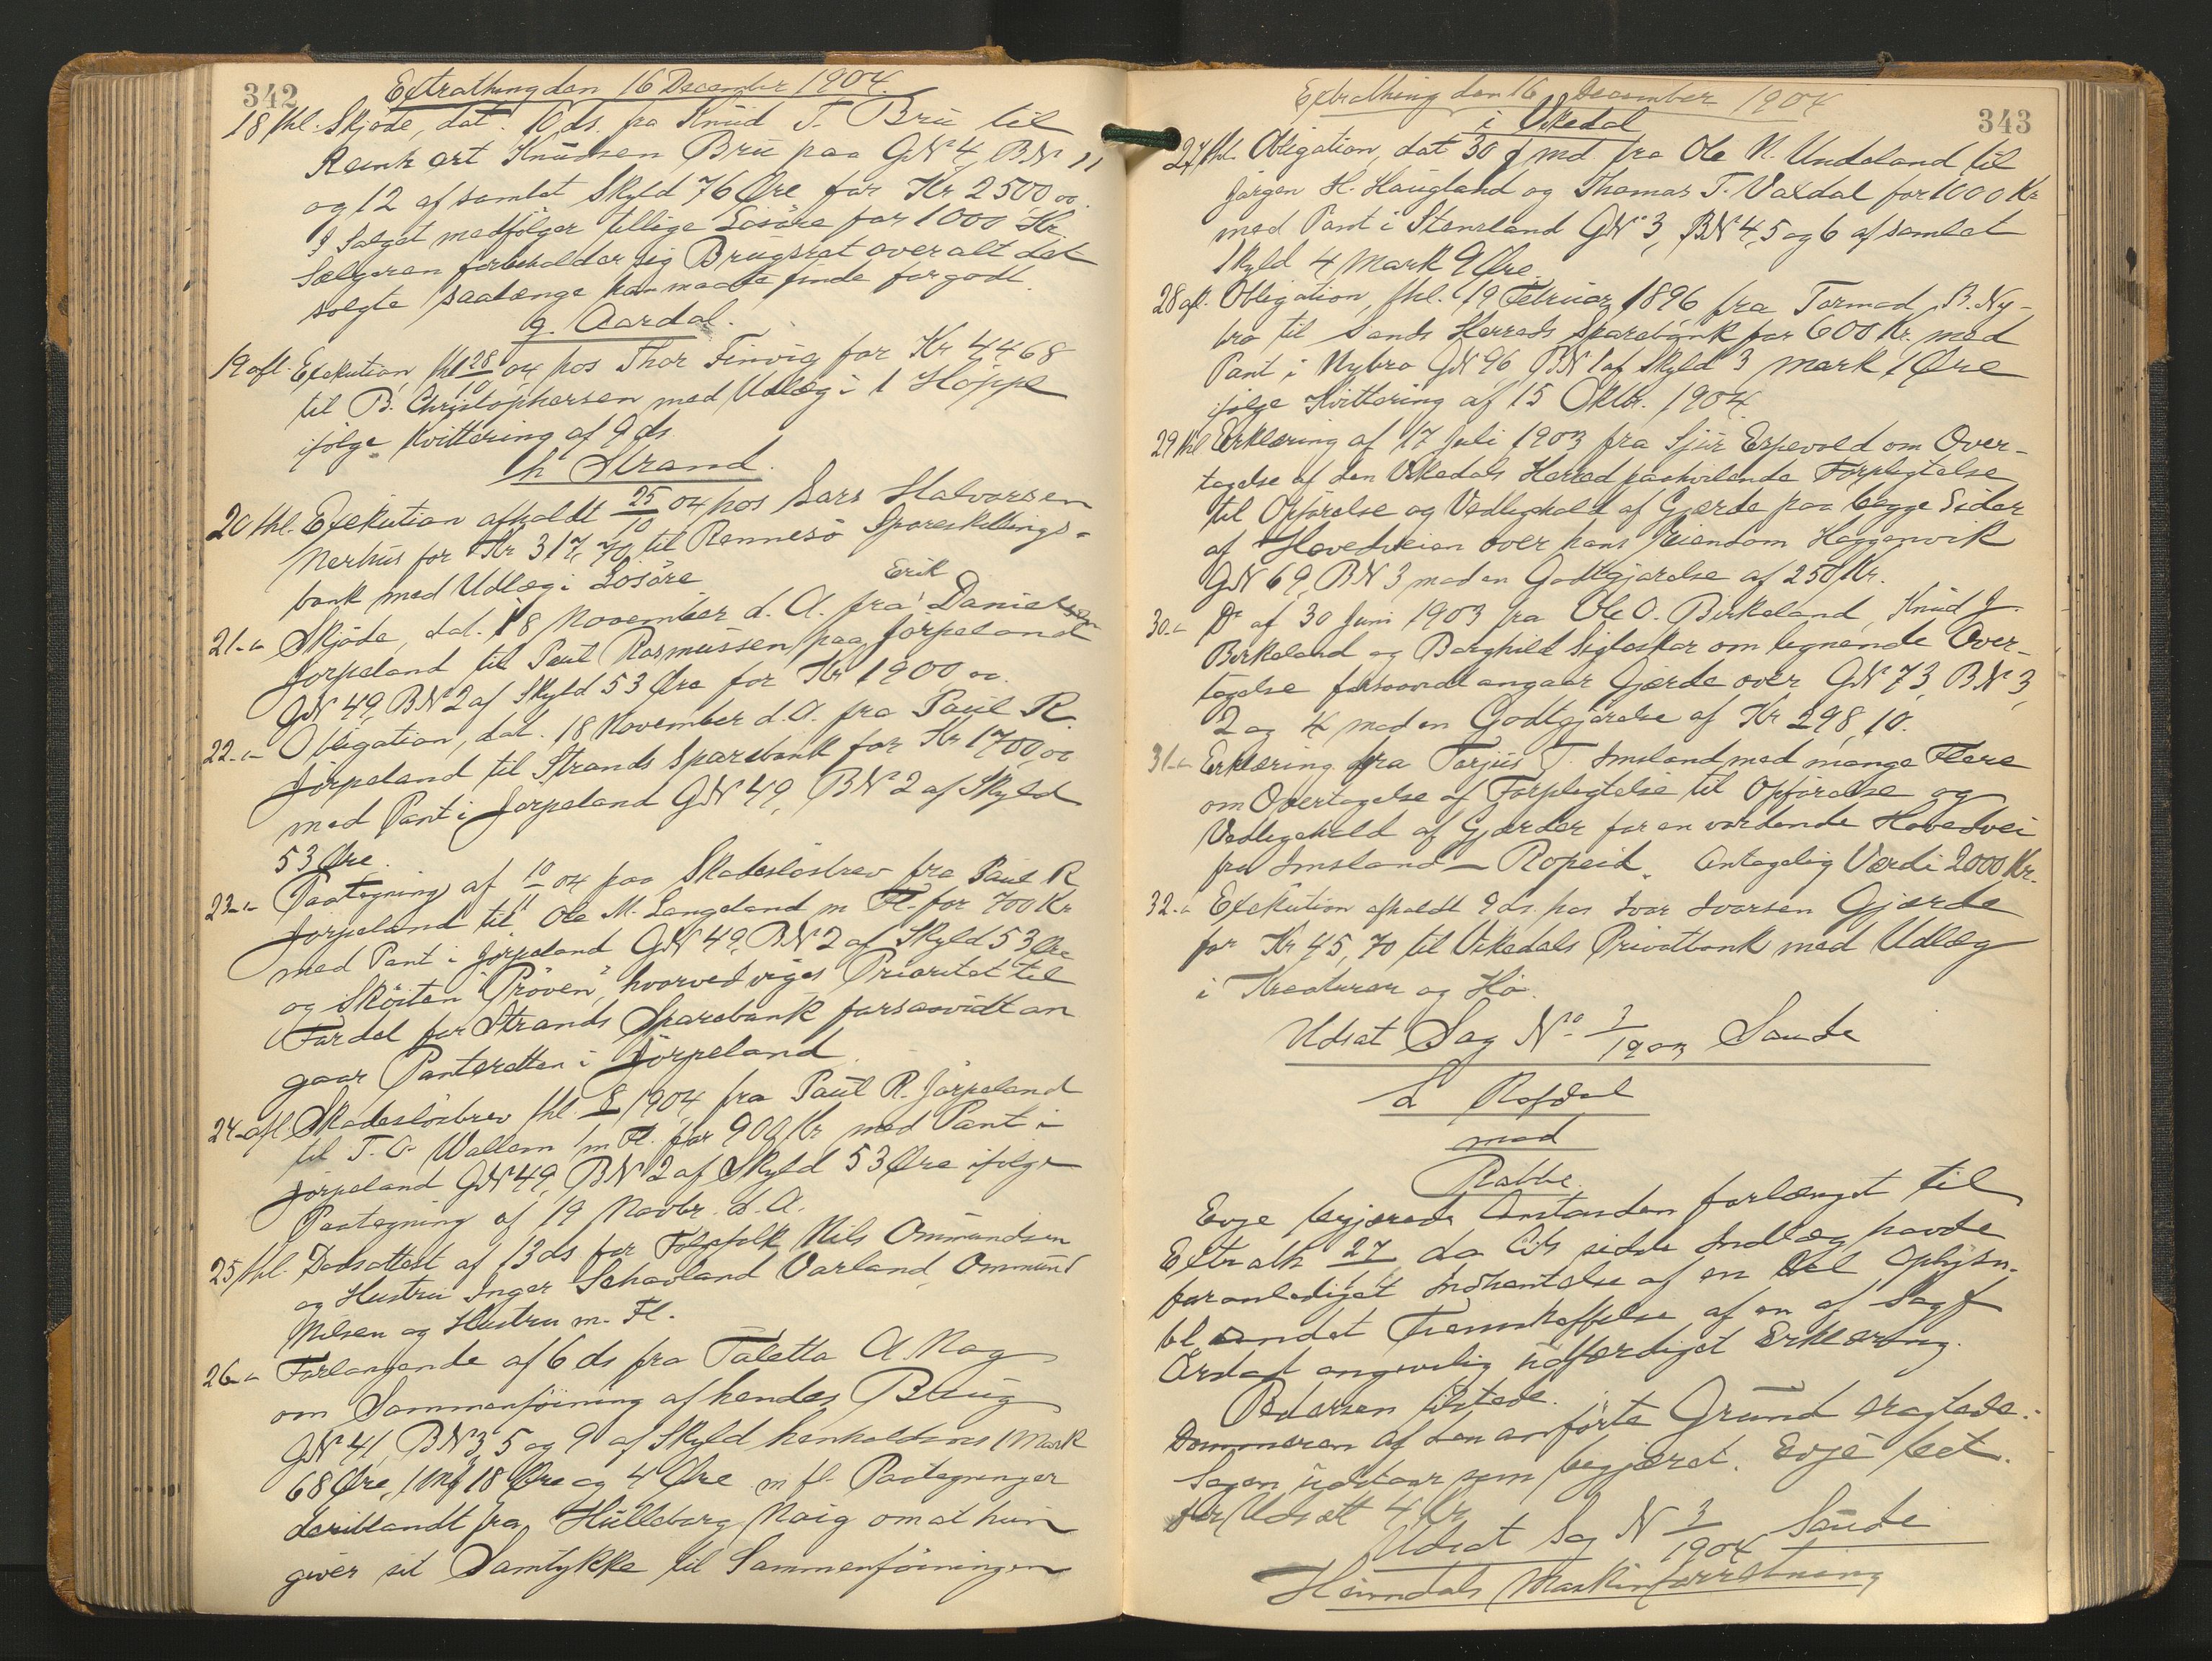 342
Extrathing den 16 December 1904.
18 thl. Skjøde, dat. 10 ds. fra Knud T. Bru til
Reinkert Knudsen Bru paa GN 4, BN 11
og 12 af samlet Skyld 76 Øre for Kr 2500 00.
I Salget medfølger tillige Løsøre for 1000 Kr.
Sælgeren forbeholder sig Brugsret over alt det
solgte saalænge han maatte finde forgodt.
g. Aardal.
19 afl. Exekution, thl 28/10 04 hos Thor Finvig for Kr 44 68
til B. Christophersen med Udlæg i 1 Hoppe
ifølge Kvittering af 9 ds.
h Strand.
20 thl. Exekution afholdt 25/10 04 hos Lars Halvorsen
Nerhus for Kr 317,70 til Rennesø Spareskillings-
bank med Udlæg i Løsøre.
21 -"- Skjøde, dat. 18 November d. A. fra Erik Danielsen
Jørpeland til Paul Rasmussen paa Jørpeland
GN 49, BN 2 af Skyld 53 Øre for Kr 1900 00.
22 -"- Obligation, dat. 18 November d. A. fra Paul R.
Jørpeland til Strands Sparebank for Kr 1700,00
med Pant i Jørpeland GN 49, BN 2 af Skyld
53 Øre.
23 -"- Paategning af 10/11 04 paa Skadesløsbrev fra Paul R
Jørpeland til Ole M. Langeland m Fl. for 700 Kr
med Pant i Jørpeland GN 49, BN 2 af Skyld 53 Øre
og Skøiten "Prøven", hvorved viges Prioritet til
Fordel for Strands Sparebank forsaavidt an
gaar Panteretten i Jørpeland.
24 afl. Skadesløsbrev thl. 1904 fra Paul R. Jørpeland
til T. O. Wallem m Fl. for 900 Kr med Pant i
Jørpeland GN 49, BN 2 af Skyld 53 Øre ifølge
Paategning af 19 Novbr. d. A.
25 thl. Dødsattest af 13 ds for Følgefolk Nils Ommundsen
og Hustru Inger Schavland Varland, Ommund
Nilsen og Hustru m. Fl.
26 -"- Forlangende af 6 ds fra Taletta A Nag
om Sammenføining af hendes Brug
GN 41, BN 3, 5 og 9 af Skyld henholdsvis 1 Mark
68 Øre, 1 Mk 18 Øre og 4 Øre m fl. Paategninger
deriblandt fra Hulleborg Naig om at hun
giver sit Samtykke til Sammenføiningen
343
Extrathing den 16 December 1904
i Vikedal
27 thl. Obligation, dat 30 f md fra Ole N. Undeland til
Jørgen H. Haugland og Thomas T. Vaxdal for 1000 Kr
med Pant i Stensland GN 3, BN 4, 5 og 6 af samlet
Skyld 4 Mark 9 Øre.
28 afl. Obligation, thl. 19 Februar 1896 fra Tormod B. Ny-
bro til Sands Herreds Sparebank for 600 Kr. med
Pant i Nybro GN 96 BN 1 af Skyld 3 mark 1 Øre
ifølge Kvittering af 15 Oktbr. 1904.
29 thl Erklæring af 17 Juli 1903 fra Sjur Espevold om Over-
tagelse af den Vikedals Herred paahvilende Forpligtelse
til Opførelse og Vedligehold af Gjærde paa begge Sider
af Hovedveien over hans Eiendom Haggenvik
GN 69, BN 3 mod en Godtgjørelse af 250 Kr.
30 -"- Do af 30 Juni 1903 fra Ole O. Birkeland, Knud J.
Birkeland og Borghild Sigleskar om lignende Over-
tagelse forsaavidt angaar Gjærde over GN 73, BN 3,
2 og 4 mod en Godtgjørelse af Kr 298,10.
31 -"- Erklæring fra Torjus T. Imsland med mange Flere
om Overtagelse af Forpligtelse til Opførelse og
Vedligehold af Gjærder for en vordende Hovedvei
fra Imsland - Ropeid. Antagelig Værdi 2000 Kr.
32 -"- Exekution afholdt 9 ds. hos Ivar Ivarsen Gjærde
for Kr 45,70 til Vikedals Privatbank med Udlæg
i Kreaturer og Hø.
Udsat Sag No 1903 Saude
L Rafdal
mod
Rabbe.
Evje begjærede Anstanden forlænget til
Extrath 27 da Cits sidste Indlæg havde
foranlediget Indhentelse af en Del Oplysn.
bl andet Fremskaffelse af en af Sagf
Ørstat angivelig udfærdiget Erklæring.
Pedersen tilstede.
Dommeren af den anførte Grund eragtede:
Sagen udstaar som begjæret. Evje bet.
for Udsætt 4 Kr
Udsat Sag N 3/1904 Saude
Hørndals Maskinforretning